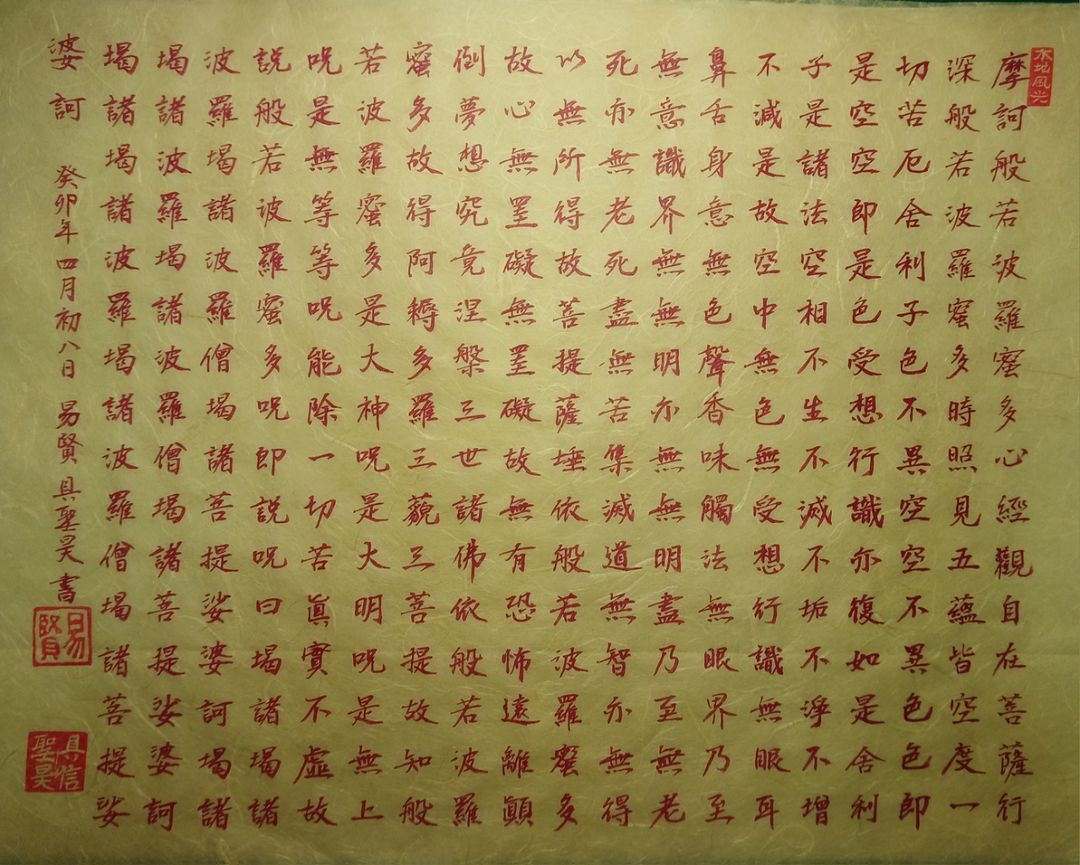 本地風光
摩訶般若波羅蜜多心經觀自在菩薩行
深般若波羅蜜多時照見五蘊皆空度一
切苦厄舍利子色不異空空不異色色即
是空空即是色受想行識亦復如是舍利
子是諸法空相不生不滅不垢不淨不增
不減是故空中無色無受想行識無眼耳
鼻舌身意無色聲香味觸法無眼界乃至
無意識界無無明亦無無明盡乃至無老
死亦無老死盡無苦集滅道無智亦無得
以無所得故菩提薩埵依般若波羅蜜多
故心無罣礙無罣礙故無有恐怖遠離顚
倒夢想究竟涅槃三世諸佛依般若波羅
蜜多故得阿耨多羅三藐三菩提故知般
若波羅蜜多是大神呪是大明呪是無上
呪是無等等呪能除一切苦眞實不虛故
說般若波羅蜜多呪即說呪曰堨諸堨諸
波羅堨諸波羅僧堨諸菩提娑婆訶堨諸
堨諸波羅堨諸波羅僧堨諸菩提娑婆訶
堨諸堨諸波羅堨諸波羅僧堨諸菩提娑
婆訶 癸卯年四月初八日 易賢具聖昊書
易賢
具信聖昊